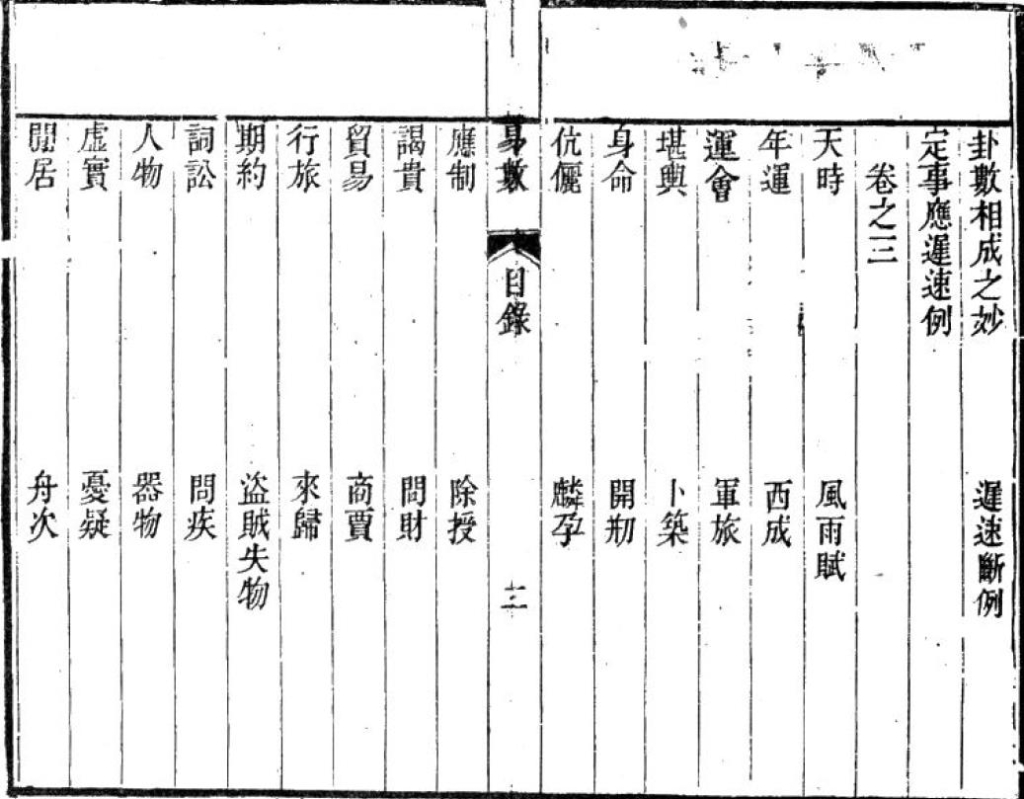 卦數相成之妙　遲速斷例
定事應遲速例
卷之三
天時　風雨賦
年運　西成
運會　軍旅
堪輿　卜築
身命　開剏
伉儷　麟孕
易數　目錄　三
應制　除授
謁貴　問財
貿易　商賈
行旅　來歸
期約　盜賊失物
詞訟　問疾
人物　器物
虛實　憂疑
閒居　舟次